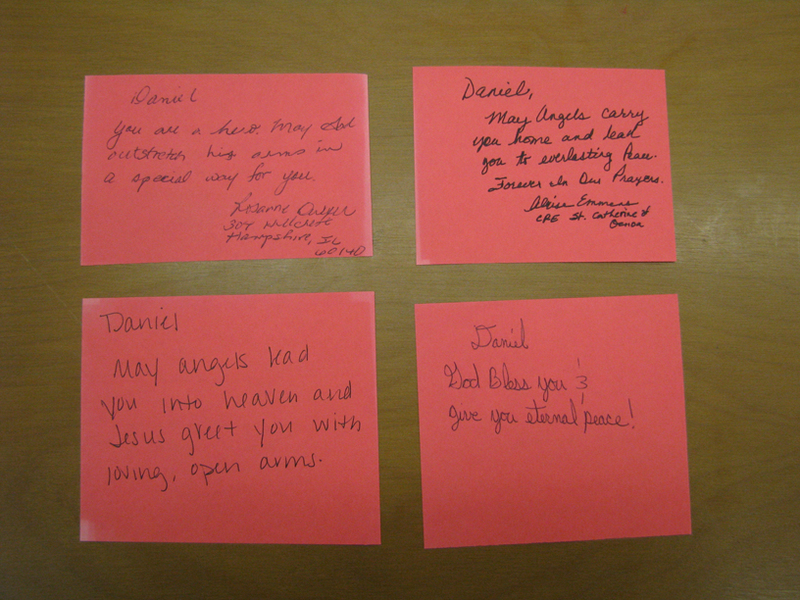 Daniel
You are a hero. May God
outstretch his arms in
a special way for you.
304 Hillcrest
Hampshire, IL
60140
Daniel,
May Angels carry
you home and lead
you to everlasting Peace.
Forever In Our Prayers.
Emmens
CRE St. Catherine of
Genoa
Daniel
May angels lead
you into heaven and
Jesus greet you with
loving, open arms.
Daniel
God Bless you &
give you eternal peace!